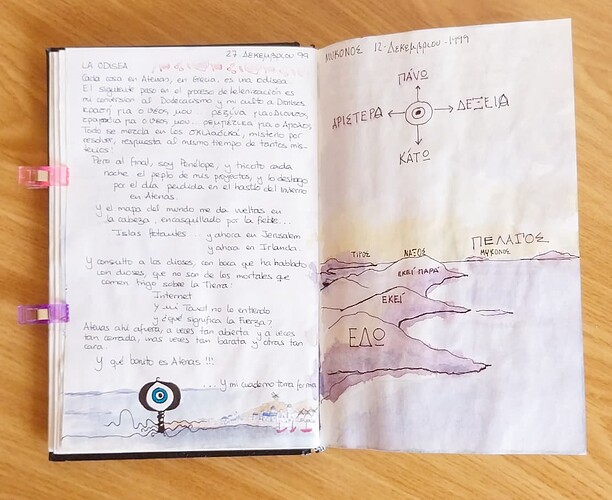 27 ΔΕΚΕΜΒΡΙΟΥ 99
LA ODISEA
Cada cosa en Atenas, en Grecia, es una odisea.
El siguiente paso en el proceso de helenización es
mi conversión al Dodecaísmo y mi culto a Dionisos.
ΚΡΑΣΗ για ο ΘΕΟΣ μου ΡΕΖΙΝΑ για Διονισος,
ο ΘΕΟΣ μου.
Todo se mezcla en los ΣΚυλαδικα, misterio por
resolver, respuesta al mismo tiempo de tantos mis-
terios!
Pero al final, soy Penélope, y tricoto cada
noche el peplo de mis proyectos, y lo deshago
por el día perdida en el hastío del invierno
en Atenas.
Y el mapa del mundo me da vueltas en
la cabeza, encasquillado por la fiebre...
Islas flotantes y ahora en Jerusalem
y ahora en Irlanda.
Y consulto a los dioses, con boca que ha hablado
con dioses, que no son de los mortales que
comen trigo sobre la Tierra:
Internet
Y mi Tarot no lo entiendo
y ¿qué significa la Fuerza?
Atenas ahí afuera, a veces tan abierta y a veces
tan cerrada, unas veces tan barata y otras tan
cara.
Y qué bonito es Atenas !!!
... Y mi cuaderno tierra firme
ΜΥΚΟΝΟΣ 12-Δεκεμβριου-1999
ΠΑΝΩ
ΑΡΙΣΤΕΡΑ ΔΕΞΕΙΑ
ΚΑΤΩ
ΠΕΛΑΓΟΣ
ΤΙΡΟΣ ΝΑΞΟΣ ΜΥΚΟΝΟΣ
ΕΚΕΙ ΠΑΡΑ
ΕΚΕΙ
ΕΔΩ